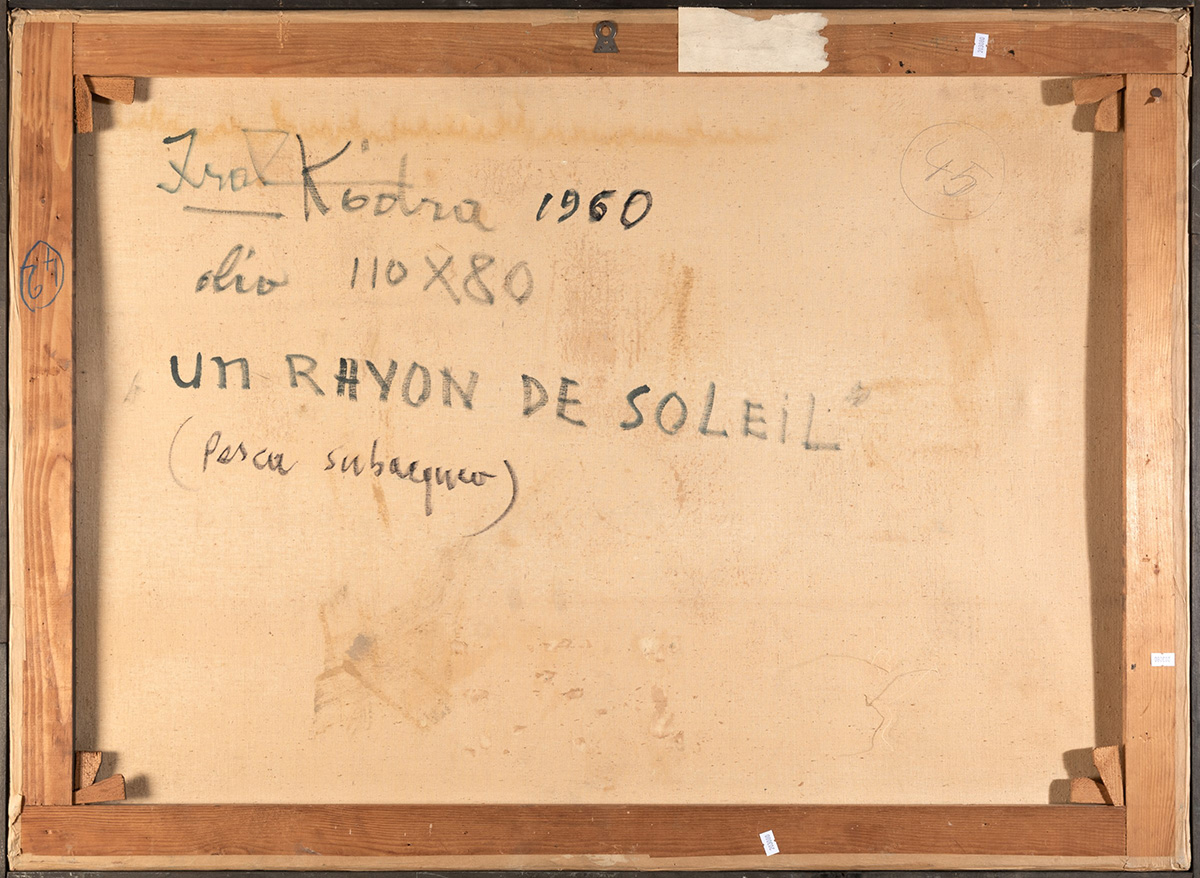 Ibra Kodra 1960
olio 110X80
"UN RAYON DE SOLEIL"
(Pesca subacquea)
45
42